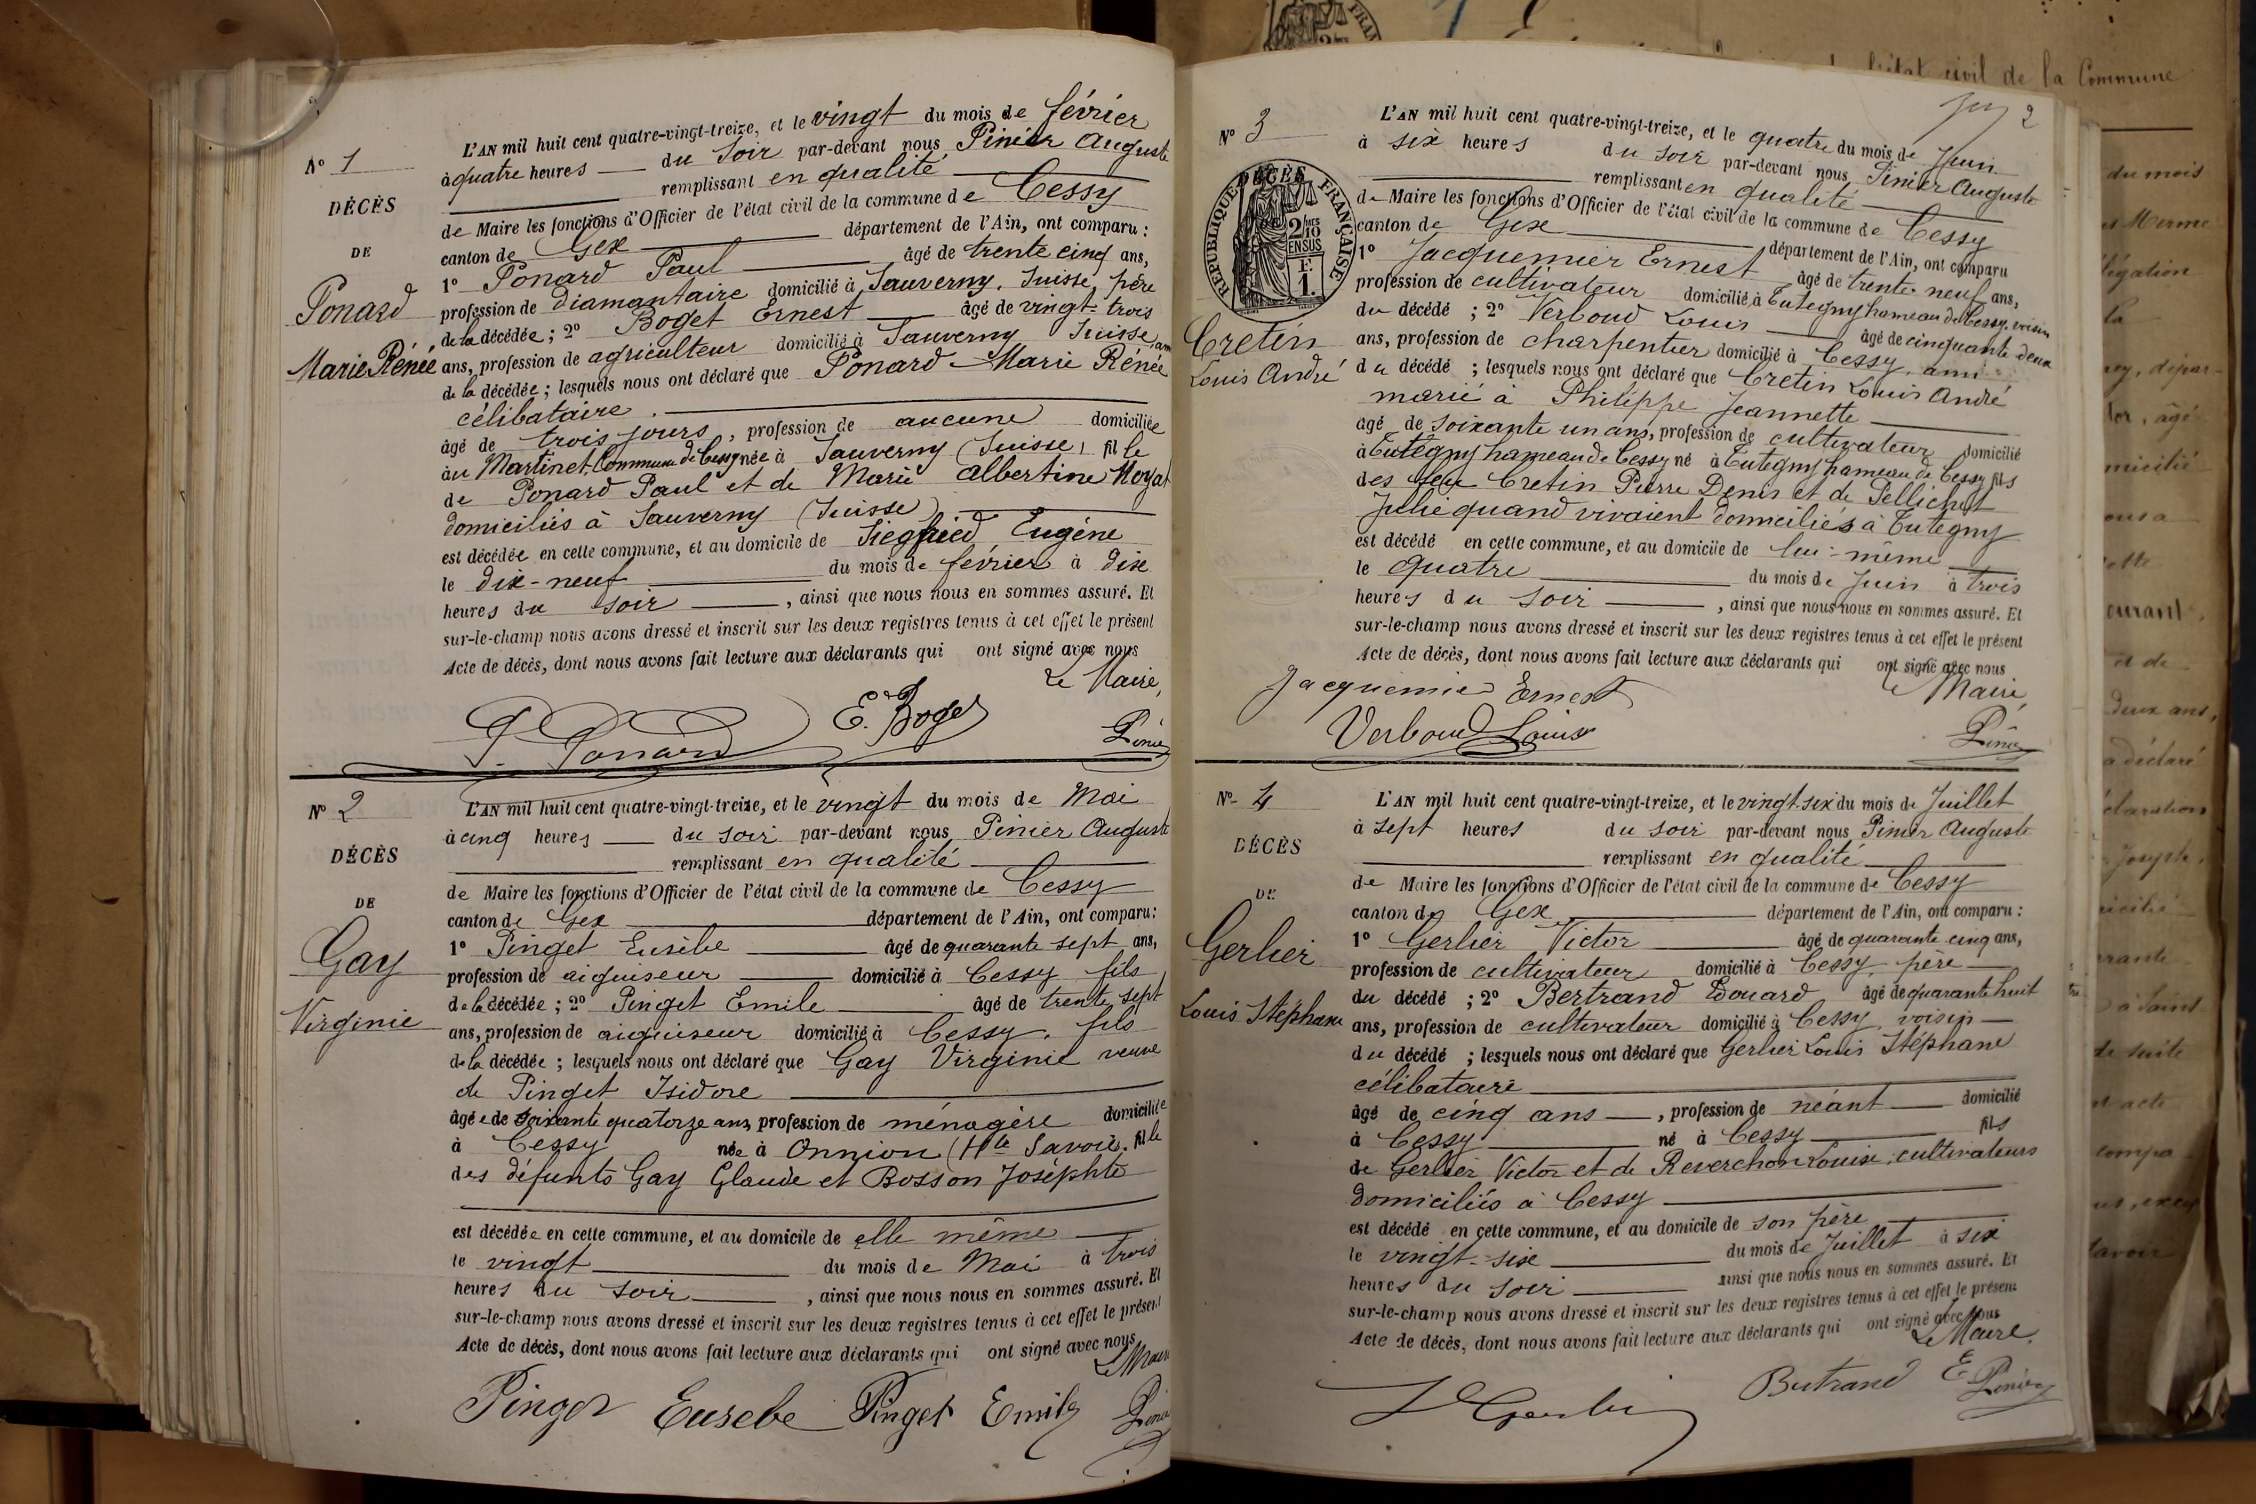 N° 1
DÉCÈS
DE
Ponard
Marie Rénée
L'AN mil huit cent quatre-vingt-treize, et le vingt du mois de février
à quatre heures du soir par-devant nous Pinier Auguste
remplissant en qualité
de Maire les fonctions d'Officier de l'état civil de la commune de Cessy
canton de Gex département de l'Ain, ont comparu :
1° Ponard Paul âgé de trente cinq ans,
profession de diamantaire domicilié à Sauverny, Suisse, père
de la décédée ; 2° Boget Ernest âgé de vingt-trois
ans, profession de agriculteur domicilié à Sauverny Suisse ami
de la décédée ; lesquels nous ont déclaré que Ponard Marie Rénée
célibataire.
âgé de trois jours, profession de aucune domiciliée
au Martinet Commune de Cessy née à Sauverny (Suisse) fille
de Ponard Paul et de Marie Albertine Moyat
domiciliés à Sauverny (Suisse)
est décédée en cette commune, et au domicile de Siegfried Eugène
le dix-neuf du mois de février à dix
heures du soir, ainsi que nous nous en sommes assuré. Et
sur-le-champ nous avons dressé et inscrit sur les deux registres tenus à cet effet le présent
Acte de décès, dont nous avons fait lecture aux déclarants qui ont signé avec nous
Le Maire,
P. Ponard E. Boget Pinier
N° 2
DÉCÈS
DE
Gay
Virginie
L'AN mil huit cent quatre-vingt-treize, et le vingt du mois de Mai
à cinq heures du soir par-devant nous Pinier Auguste
remplissant en qualité
de Maire les fonctions d'Officier de l'état civil de la commune de Cessy
canton de Gex département de l'Ain, ont comparu :
1° Pinget Eusèbe âgé de quarante sept ans,
profession de aiguiseur domicilié à Cessy fils
de la décédée ; 2° Pinget Emile âgé de trente sept
ans, profession de aiguiseur domicilié à Cessy, fils
de la décédée ; lesquels nous ont déclaré que Gay Virginie veuve
de Pinget Isidore
âgée de soixante quatorze ans, profession de ménagère domiciliée
à Cessy née à Onnion (Hte Savoie). fille
des défunts Gay Claude et Bosson Joséphte
est décédée en cette commune, et au domicile de elle même
le vingt du mois de Mai à trois
heures du soir, ainsi que nous nous en sommes assuré. Et
sur-le-champ nous avons dressé et inscrit sur les deux registres tenus à cet effet le présent
Acte de décès, dont nous avons fait lecture aux déclarants qui ont signé avec nous
Le Maire
Pinget Eusebe Pinget Emile Pinier
2
N° 3
DÉCÈS
RÉPUBLIQUE FRANÇAISE
2/10
EN SUS
F.
1.
Cretin
Louis André
L'AN mil huit cent quatre-vingt-treize, et le quatre du mois de Juin
à six heures du soir par-devant nous Pinier Auguste
remplissant en qualité
de Maire les fonctions d'Officier de l'état civil de la commune de Cessy
canton de Gex département de l'Ain, ont comparu
1° Jacquemier Ernest âgé de trente-neuf ans,
profession de cultivateur domicilié à Tutegny hameau de Cessy, voisin
du décédé ; 2° Verboud Louis âgé de cinquante deux
ans, profession de charpentier domicilié à Cessy, ami
du décédé ; lesquels nous ont déclaré que Cretin Louis André
marié à Philippe Jeannette
agé de soixante un ans, profession de cultivateur domicilié
à Tutegny hameau de Cessy né à Tutegny hameau de Cessy fils
des feu Cretin Pierre Denis et de Pellichet
Julie quand vivaient domiciliés à Tutegny
est décédé en cette commune, et au domicile de lui-même
le quatre du mois de Juin à trois
heures du soir, ainsi que nous nous en sommes assuré. Et
sur-le-champ nous avons dressé et inscrit sur les deux registres tenus à cet effet le présent
Acte de décès, dont nous avons fait lecture aux déclarants qui ont signé avec nous
Le Maire,
Jacquemier Ernest
Verboud Louis Pinier
N° 4
DÉCÈS
DE
Gerlier
Louis Stéphane
L'AN mil huit cent quatre-vingt-treize, et le vingt-six du mois de Juillet
à sept heures du soir par-devant nous Pinier Auguste
remplissant en qualité
de Maire les fonctions d'Officier de l'état civil de la commune de Cessy
canton de Gex département de l'Ain, ont comparu :
1° Gerlier Victor âgé de quarante cinq ans,
profession de cultivateur domicilié à Cessy, père
du décédé ; 2° Bertrand Edouard âgé de quarante huit
ans, profession de cultivateur domicilié à Cessy voisin
du décédé ; lesquels nous ont déclaré que Gerlier Louis Stéphane
célibataire
âgé de cinq ans, profession de néant domicilié
à Cessy né à Cessy fils
de Gerlier Victor et de Reverchon Louise, cultivateurs
domiciliés à Cessy
est décédé en cette commune, et au domicile de son père
le vingt-six du mois de Juillet à six
heures du soir ainsi que nous nous en sommes assuré. Et
sur-le-champ nous avons dressé et inscrit sur les deux registres tenus à cet effet le présent
Acte de décès, dont nous avons fait lecture aux déclarants qui ont signé avec nous
Le Maire.
Gerlier Bertrand E Pinier
l'état civil de la Commune
du mois